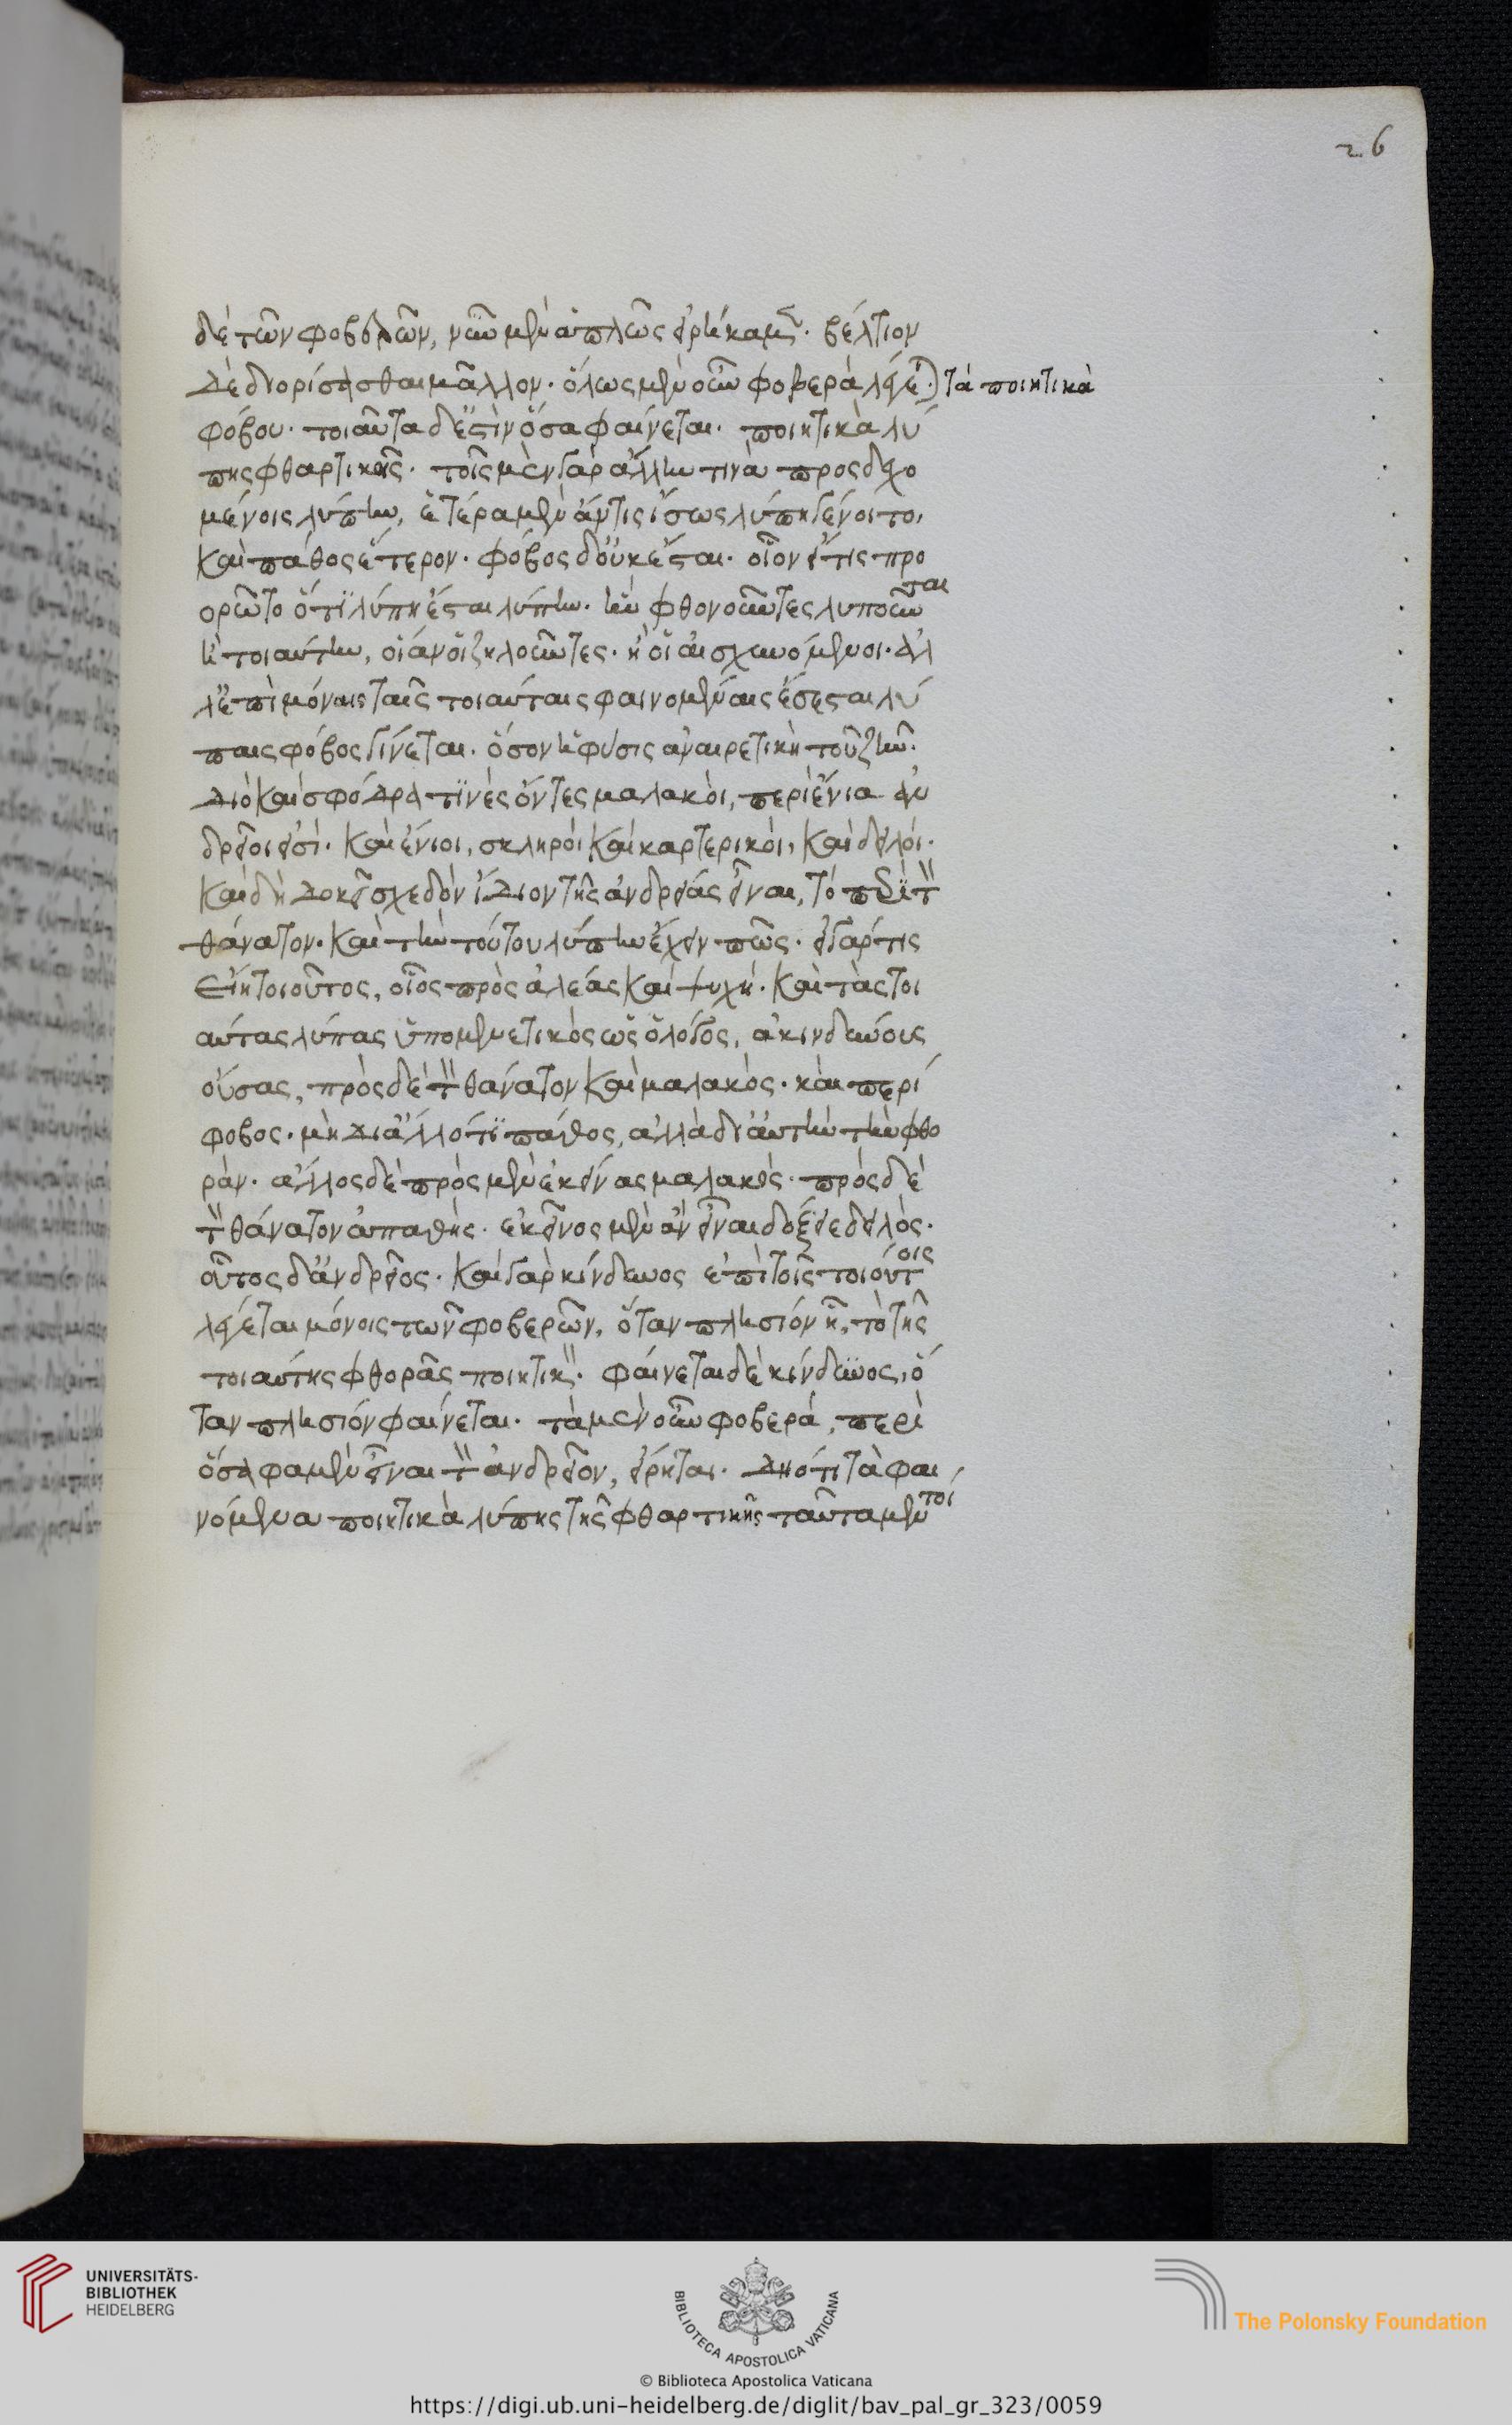 26
δὲ τῶν φοβερῶν, νῦν μὲν ἁπλῶς εἰρήκαμεν. βέλτιον
δὲ διορίσασθαι μᾶλλον. ὅλως μὲν οὖν φοβερὰ λέγε) τὰ ποιητικὰ
φόβου. τοιαῦτα δ' ἐστὶν ὅσα φαίνεται. ποιητικὰ λύ
πης φθαρτικῆς. τοῖς μὲν γὰρ ἄλλην τινὰ προσδεχο
μένοις λύπην, ἑτέρα μὲν ἄν τις ἴσως λύπη γένοιτο,
καὶ πάθος ἕτερον. φόβος δ' οὐκ ἔσται. οἷον εἴ τις προ
ορῶτο ὅτι λύπη ἔσται λύπην. ἣν φθονοῦντες λυποῦνται
ἢ τοιαύτην, οἵαν οἱ ζηλοῦντες. ἢ οἱ αἰσχυνόμενοι. ἀλ
λ' ἐπὶ μόναις ταῖς τοιαύταις φαινομέναις ἔσεσται λύ
παις φόβος γίνεται. ὅσον ἡ φύσις ἀναιρετικὴ τοῦ ζῆν.
διὸ καὶ σφόδρα τινὲς ὄντες μαλακοὶ, περὶ ἔνια ἀν
δρεῖοι εἰσί. καὶ ἔνιοι, σκληροὶ καὶ καρτερικοὶ, καὶ δειλοί.
καὶ δὴ δοκεῖ σχεδὸν ἴδιον τῆς ἀνδρείας εἶναι, τὸ περὶ τὸν
θάνατον. καὶ τὴν τούτου λύπην ἔχειν πῶς. εἰ γάρ τις
εἴη τοιοῦτος, οἷος πρὸς ἀλέας καὶ ψυχή. καὶ τὰς τοι
αύτας λύπας ὑπομενετικὸς ὡς ὁ λόγος, ἀκινδύνους
οὔσας, πρὸς δὲ τὸν θάνατον καὶ μαλακός. καὶ περί
φοβος. μὴ δι' ἄλλό τι πάθος, ἀλλὰ δι' αὐτὴν τὴν φθο
ράν. ἄλλος δὲ πρὸς μὲν ἐκείνας μαλακός. πρὸς δὲ
τὸν θάνατον ἀπαθής. ἐκεῖνος μὲν ἂν εἶναι δόξειε δειλός.
οὗτος δ' ἀνδρεῖος. καὶ γὰρ κίνδυνος ἐπὶ τοῖς τοιούτοις
λέγεται μόνοις τῶν φοβερῶν, ὅταν πλησίον ᾖ, τὸ τῆς
τοιαύτης φθορᾶς ποιητικόν. φαίνεται δὲ κίνδυνος, ὅ
ταν πλησίον φαίνεται. τὰ μὲν οὖν φοβερά, περὶ
ὅσα φαμὲν εἶναι τὸν ἀνδρεῖον, εἴρηται. διότι τὰ φαι
νόμενα ποιητικὰ λύπης τῆς φθαρτικῆς ταῦτα μέντοι
UNIVERSITÄTS-
BIBLIOTHEK
HEIDELBERG
BIBLIOTECA APOSTOLICA VATICANA
The Polonsky Foundation
© Biblioteca Apostolica Vaticana
https://digi.ub.uni-heidelberg.de/diglit/bav_pal_gr_323/0059